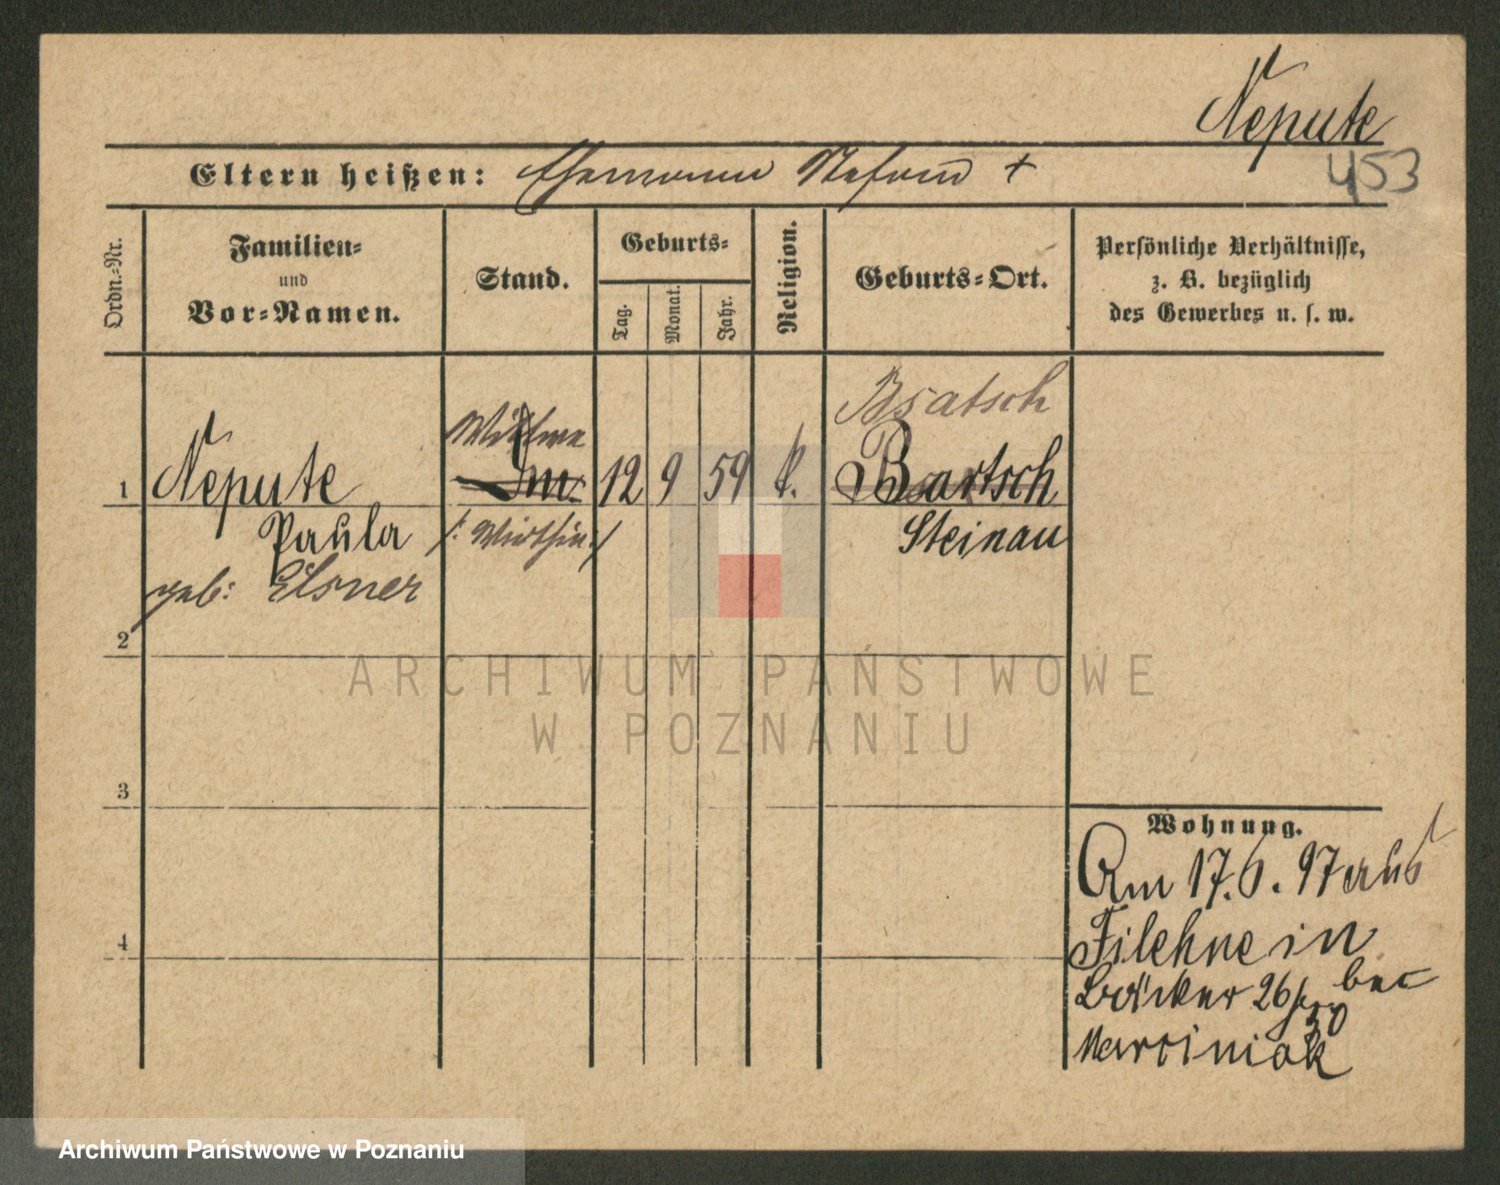 Nepute
453
Eltern heißen: Ehemann Stefan +
Ordn.-Nr.
Familien-
und
Vor-Namen.
Stand.
Geburts-
Tag.
Monat.
Jahr.
Religion.
Geburts-Ort.
Persönliche Verhältnisse,
z. B. bezüglich
des Gewerbes u. s. w.
1 Nepute 12 9 59 k. Bartsch
Bratsch
Wittwe
Paula /: Wirthin :/ Steinau
geb: Elsner
2
3
4
Wohnung.
Am 17.6.97 aus
Filehne in
Bäcker 26/30 bei
Marciniak
ARCHIWUM PAŃSTWOWE
W POZNANIU
Archiwum Państwowe w Poznaniu